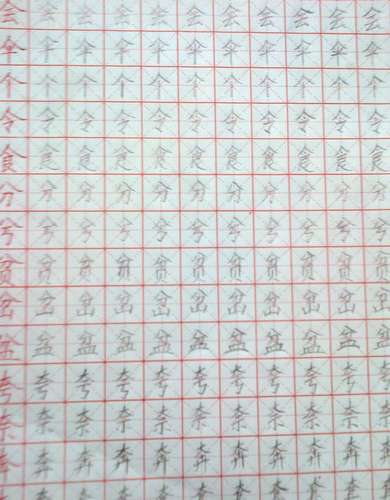 会会会会会会会会会会会
伞伞伞伞伞伞伞伞伞伞伞
个个个个个个个个个个个
令令令令令令令令令令令
食食食食食食食食食食食
分分分分分分分分分分分
兮兮兮兮兮兮兮兮兮兮兮
贫贫贫贫贫贫贫贫贫贫贫
岔岔岔岔岔岔岔岔岔岔岔
盆盆盆盆盆盆盆盆盆盆盆
夸夸夸夸夸夸夸夸夸夸夸
奈奈奈奈奈奈奈奈奈奈奈
奔奔奔奔奔奔奔奔奔奔奔